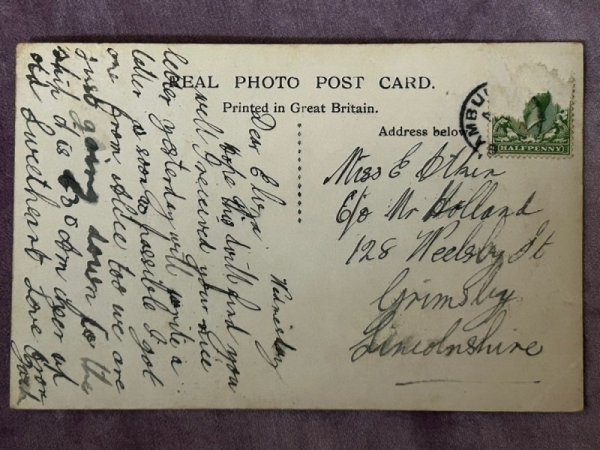 REAL PHOTO POST CARD.
Printed in Great Britain.
Address below
HALFPENNY
Miss E
C/o Mr Holland
128 Weelsby St
Grimsby
Lincolnshire
Wednesday
Dear Eliza
hope this will find you
well I received your nice
letter yesterday will write a
letter as soon as possible I got
one from Alice too we are
just going down to the
ship it is
old Sweetheart Love from